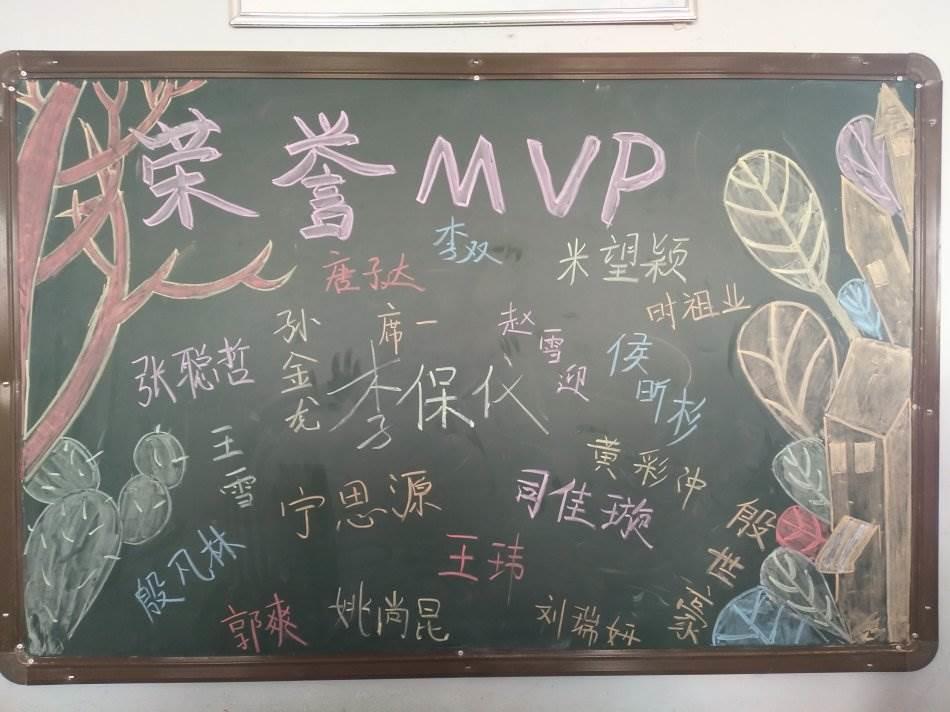 荣誉MVP
李双
米望颖
唐子达
时祖业
孙金龙
席一
赵雪迎
侯昕杉
张聪哲
李保仪
王雪
黄彩冲
宁思源
司佳璇
殷世豪
王玮
殷凡林
郭爽
姚尚昆
刘瑞妍